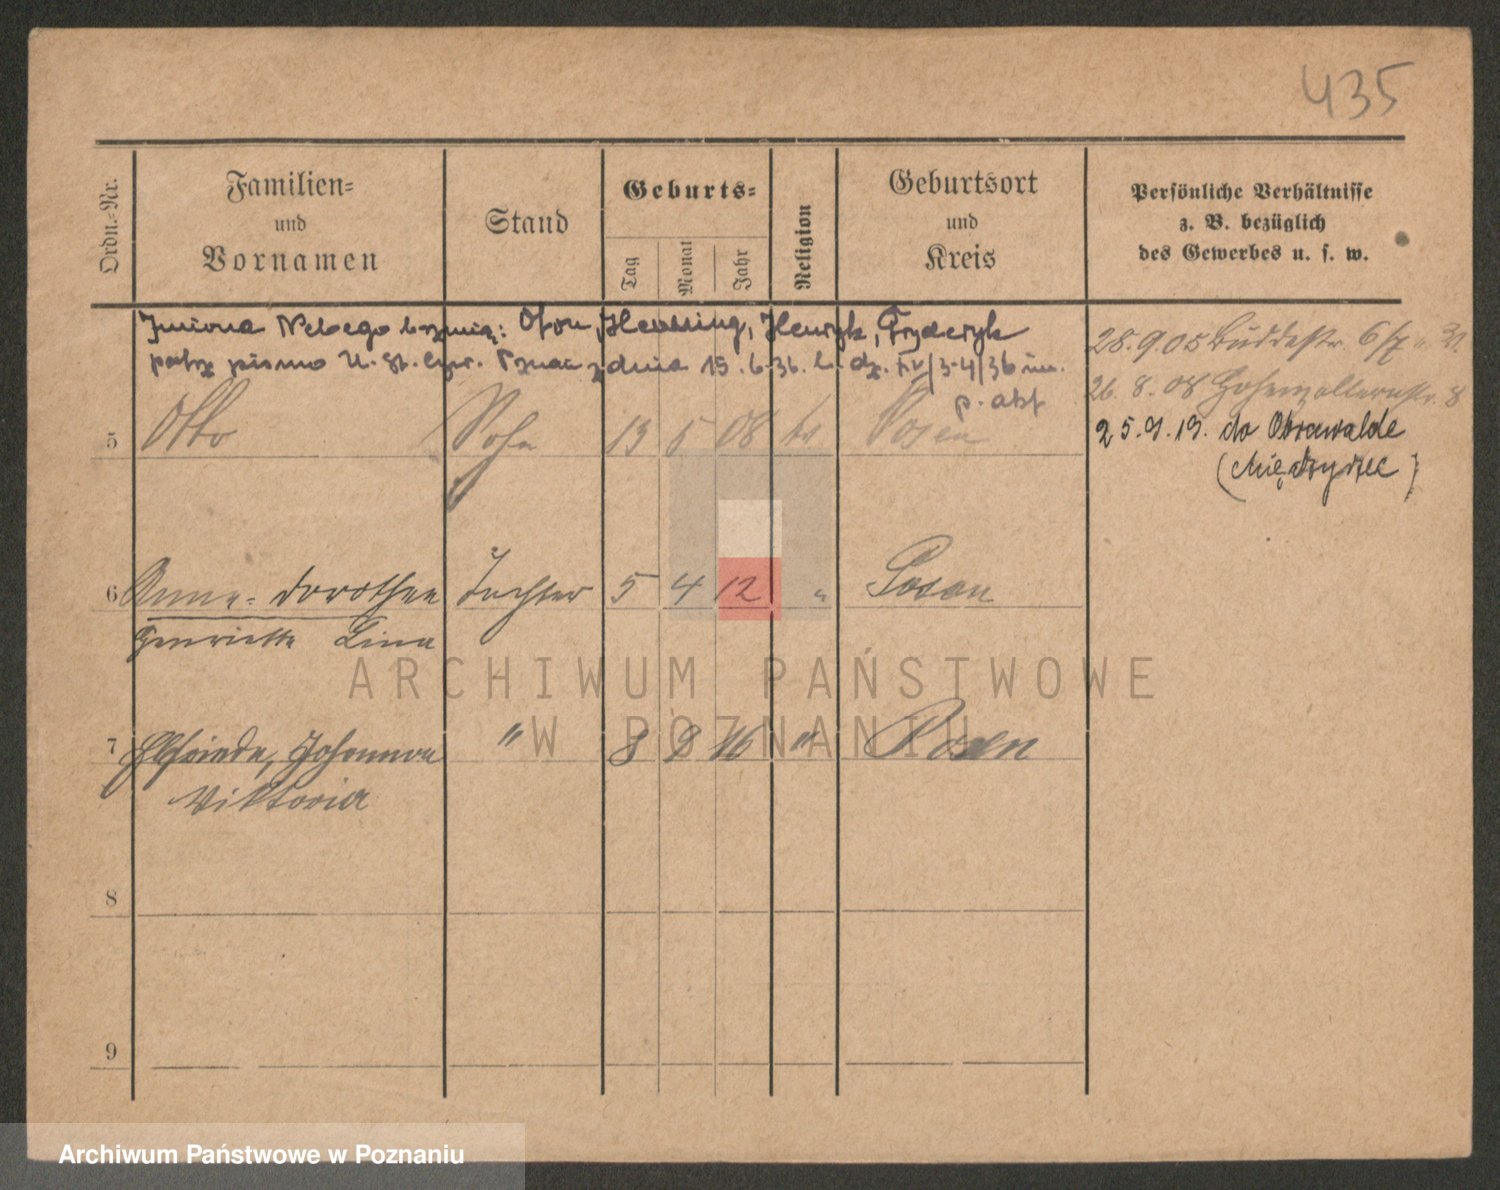 435
Ordn.-Nr.
Familien-
und
Vornamen
Stand
Geburts-
Tag
Monat
Jahr
Religion
Geburtsort
und
Kreis
Persönliche Verhältnisse
z. B. bezüglich
des Gewerbes u. s. w.
Imiona brzmią: Oton, Henning, Henryk, Fryderyk
patrz pismo U. St. Cyw. z dnia 15.6.36. L. dz. 3-4/36
p. akt
28.9.05 Buddestr. 6
26. 8. 08 Hohenzollernstr. 8
25.9.19. do Obrawalde
(Międzyrzec)
5 Otto Sohn 13 5 08 Posen
6 Anna-Dorothea Tochter 5 4 12 " Posen
Henriette Lina
7 Elfriede, Johanna " 8 9 16 " Posen
Viktoria
8
9
ARCHIWUM PAŃSTWOWE
W POZNANIU
Archiwum Państwowe w Poznaniu